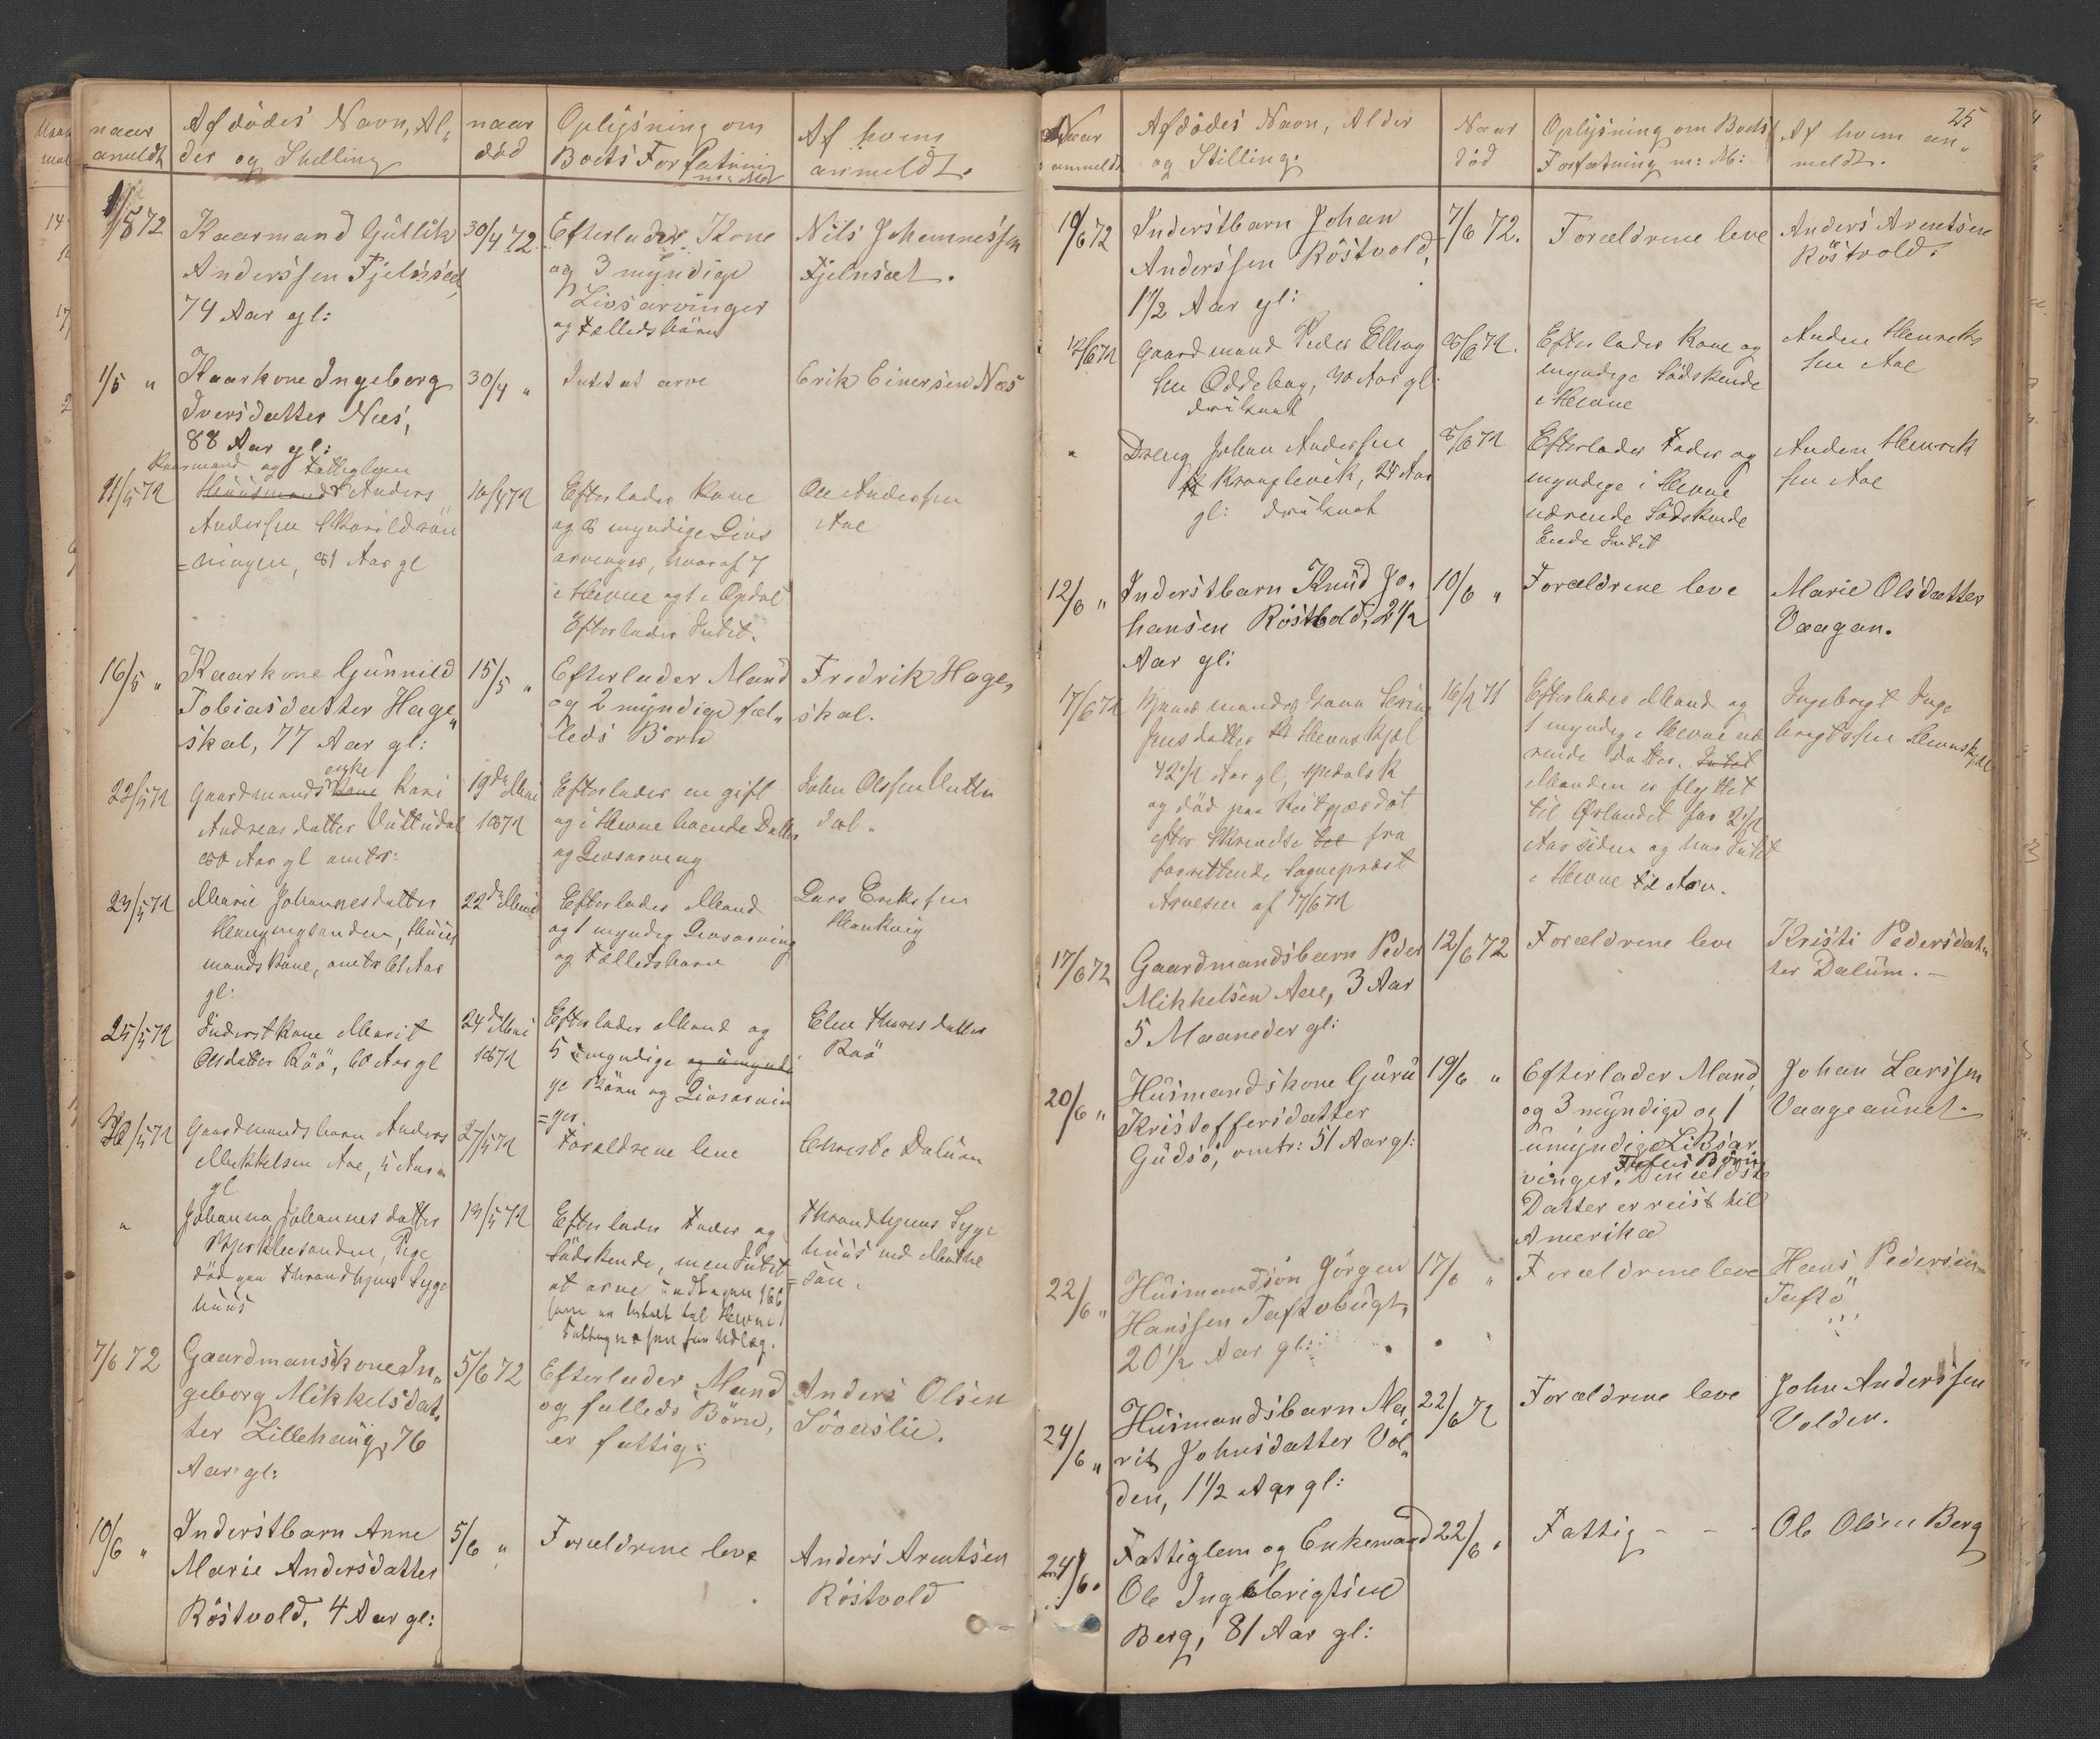 naar anmeldt
Afdödes Navn, Al„
der og Stilling
naar död
Oplysning om
Boets Forfatning
m: M:
Af hvem
anmeldt.
1/5 72
Kaarmand Gullik
Anderssen Fjelnset,
74 Aar gl:
30/4 72.
Efterlader Kone
og 3 myndige
Livsarvinger
og Fælledsbörn
Nils Johannessen
Fjelnset.
1/5 "
Kaarkone Ingeborg
Iversdatter Næs,
88 Aar gl:
30/4 "
Intet at arve
Erik Einersen Næs
11/5 72
Kaarmand og Fattiglem
Huusmand Anders
Andersen
=ningen, 81 Aar gl
10/5 72
Efterlader Kone
og 8 myndige Livs
arvinger, hvoraf 7
i Hevne og 1 i Opdal
Efterlader Intet.
Ole Andersen
Aae
16/5 "
Kaarkone Gunnild
Tobiasdatter Hage„
skal, 77 Aar gl:
15/5 "
Efterlader Mand
og 2 myndige fæl„
leds Börn
Fredrik Hage„
skal.
22/5 72
enke
Gaardmands Kone Kari
Andreasdatter Vuttudal
80 Aar gl omtr:
19de Mai
1872
Efterlader en gift
og i Hevne boende Datter
og Livsarving
John Olssen Vuttu
dal.
23/5 72
Marie Johannesdatter
Henningsanden, Huus
mandskone, omtr 61 Aar
gl:
22de Mai
Efterlader Mand
og 1 myndig Livsarving
og Fælledsbarn
Lars Eriksen
25/5 72
Inderstkone Marit
Olsdatter Röö, 60 Aar gl
24de Mai
1872
Efterlader Mand og
5 myndige og umyndi
ge Börn og Livsarvin
=ger.
Elen Thoresdatter
Röö
/5 72
Gaardmandsbarn Anders
Mikkelsen Aae, 5 Aar
gl
27/5 72
Forældrene leve
Christi Dalum
"
Johanna Johannesdatter
Bjerklesanden, Pige
död paa Throndhjems Syge
huus
13/5 72
Efterlader Fader og
Södskende, men Intet
at arve undtagen
som er betalt til Hevne
Fattigvæsen for Udlæg.
Throndhjems Syge
huus ved
=sen.
7/6 72
Gaardmanskone In„
geborg Mikkelsdat„
ter Lillehaug, 76
Aar gl:
5/6 72
Efterlader Mand
og fælleds Börn,
er fattig:
Anders Olsen
Söeaslie.
10/6 "
Inderstbarn Anne
Marie Andersdatter
Röstvold, 4 Aar gl:
5/6 "
Forældrene leve
Anders Arentsen
Röstvold
25
Naar
anmeldt
Afdödes Navn, Alder
og Stilling.
Naar
död
Oplysning om Boets
Forfatning m: M:
Af hvem an„
meldt.
10/6 72
Inderstbarn Johan
Anderssen Röstvold,
1 1/2 Aar gl:
7/6 72.
Forældrene leve
Anders Arentsen
Röstvold.
12/6 72
Gaardmand Peder Elling
sen Oddebug, 40 Aar gl:
druknet
8/6 72.
Efterlader Kone og
myndige Södskende
i Hevne
Anders Henrik
sen Aae
"
Dreng Johan Andersen
Krongslevik, 24 Aar
gl: druknet
8/6 72
Efterlader Fader og
myndige i Hevne
værende Södskende
Eiede Intet
Anders Henrik
sen Aae
12/6 "
Inderstbarn Knud Jo„
hansen Röstvold, 2 1/2
Aar gl:
10/6 "
Forældrene leve
Marie Olsdatter
Vaagan.
17/6 72
42 1/2 Aar gl, spedalsk
og död paa Reitgjærdet
efter Skrivelse fra
forrettende Sognepræst
Arnesen af 17/6 72
16/2 71
Efterlader Mand og
1 myndig i Hevne væ
rende Datter. Intet
Manden er flyttet
til Ørlandet for 2 1/2
Aar siden og har Intet
i Hevne til Arv.
Ingebrigt Inge
brigtssen Hevnskjel
17/6 72
Gaardmandsbarn Peder
Mikkelsen Aae, 3 Aar
5 Maaneder gl:
12/6 72
Forældrene leve
Kristi Pedersdat„
ter Dalum. –
20/6 "
Husmandskone Guru
Kristoffersdatter
Gudsö, omtr: 51 Aar gl:
19/6 "
Efterlader Mand
og 3 myndige og 1
umyndige Livsar
vinger. Den ældste
Datter er reist til
Amerika
Johan Larssen
Vaageaunet.
22/6 "
Husmandssön Jörgen
Hanssen Taftöbugt,
20 1/2 Aar gl:
17/6 "
Forældrene leve
Hans Pedersen
Taftö
24/6 "
Husmandsbarn Ma
rit Johnsdatter Vol„
den, 1 1/2 Aar gl:
22/6 72
Forældrene leve
John Anderssen
Volden.
24/6 "
Fattiglem og Enkemand
Ole Ingebrigtsen
Berg, 81 Aar gl:
22/6 "
Fattig – – –
Ole Olsen Berg